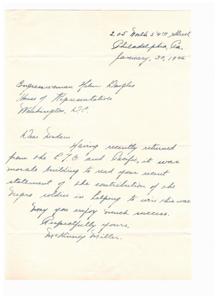 205 South 54th Street
Philadelphia, Pa.
January, 30, 1946
Congresswoman Helen Douglas
House of Representatives
Washington, D.C.
Dear Madam:
Having recently returned
from the E.T.O and Pacific, it was
morale building to read your recent
statement of the contribution of the
Negro soldier in helping to win this war.
May you enjoy much success.
Respectfully yours,
McKinley Miller.